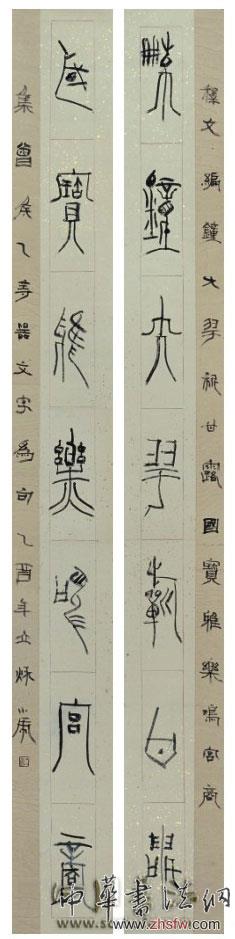 釋文編鐘大雩祈甘露國寶雅樂鳴宮商
編鐘大雩祈甘露
國寶雅樂鳴宮商
集曾侯乙器文字為句乙酉年立秋
中華書法網
www.zhsfw.com